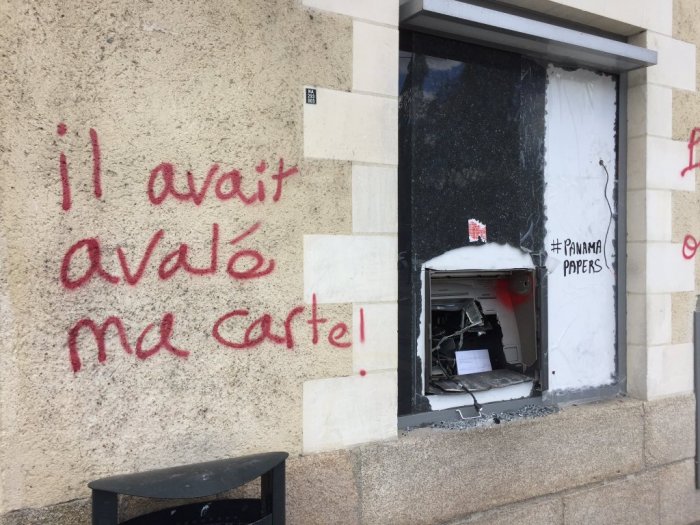 il avait
avalé
ma carte!
#PANAMA
PAPERS